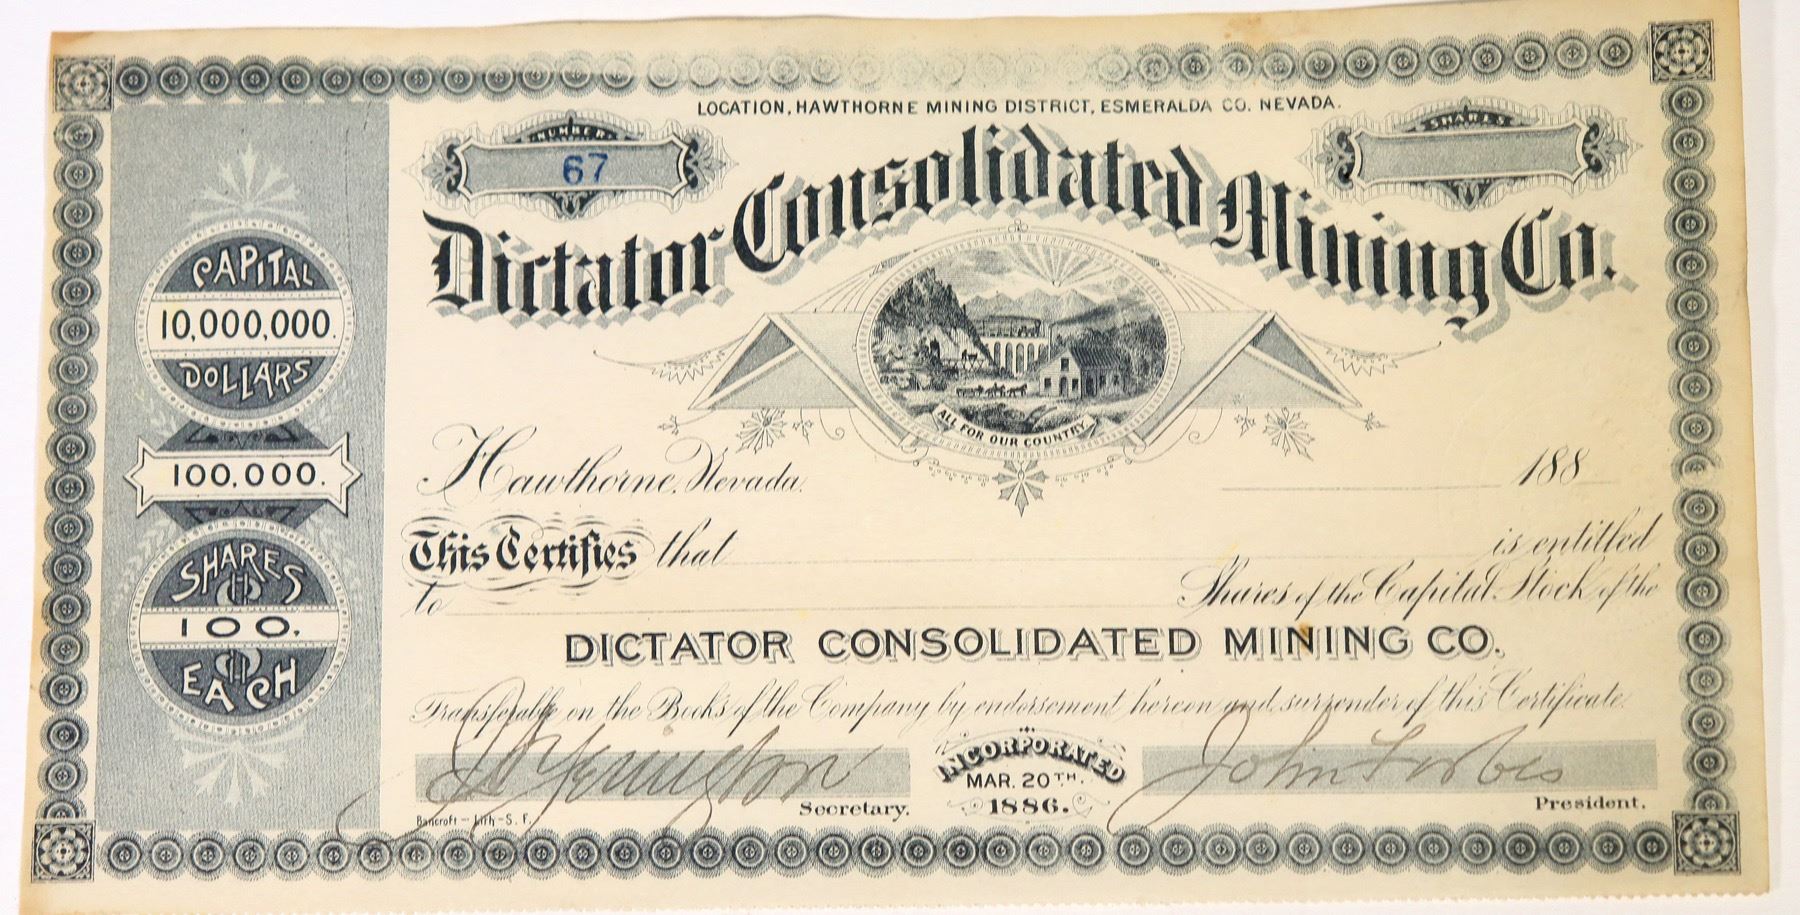 LOCATION, HAWTHORNE MINING DISTRICT, ESMERALDA CO. NEVADA.
NUMBER
67
SHARES
Dictator Consolidated Mining Co.
CAPITAL
10,000,000.
DOLLARS
100,000.
SHARES
$
100.
$
EACH
ALL FOR OUR COUNTRY.
Hawthorne, Nevada, 188
This Certifies that is entitled
to Shares of the Capital Stock of the
DICTATOR CONSOLIDATED MINING CO.
Transferable on the Books of the Company by endorsement hereon and surrender of this Certificate.
Yerington
Secretary.
INCORPORATED
MAR. 20TH.
1886.
John Forbes
President.
Bancroft - Lith - S. F.